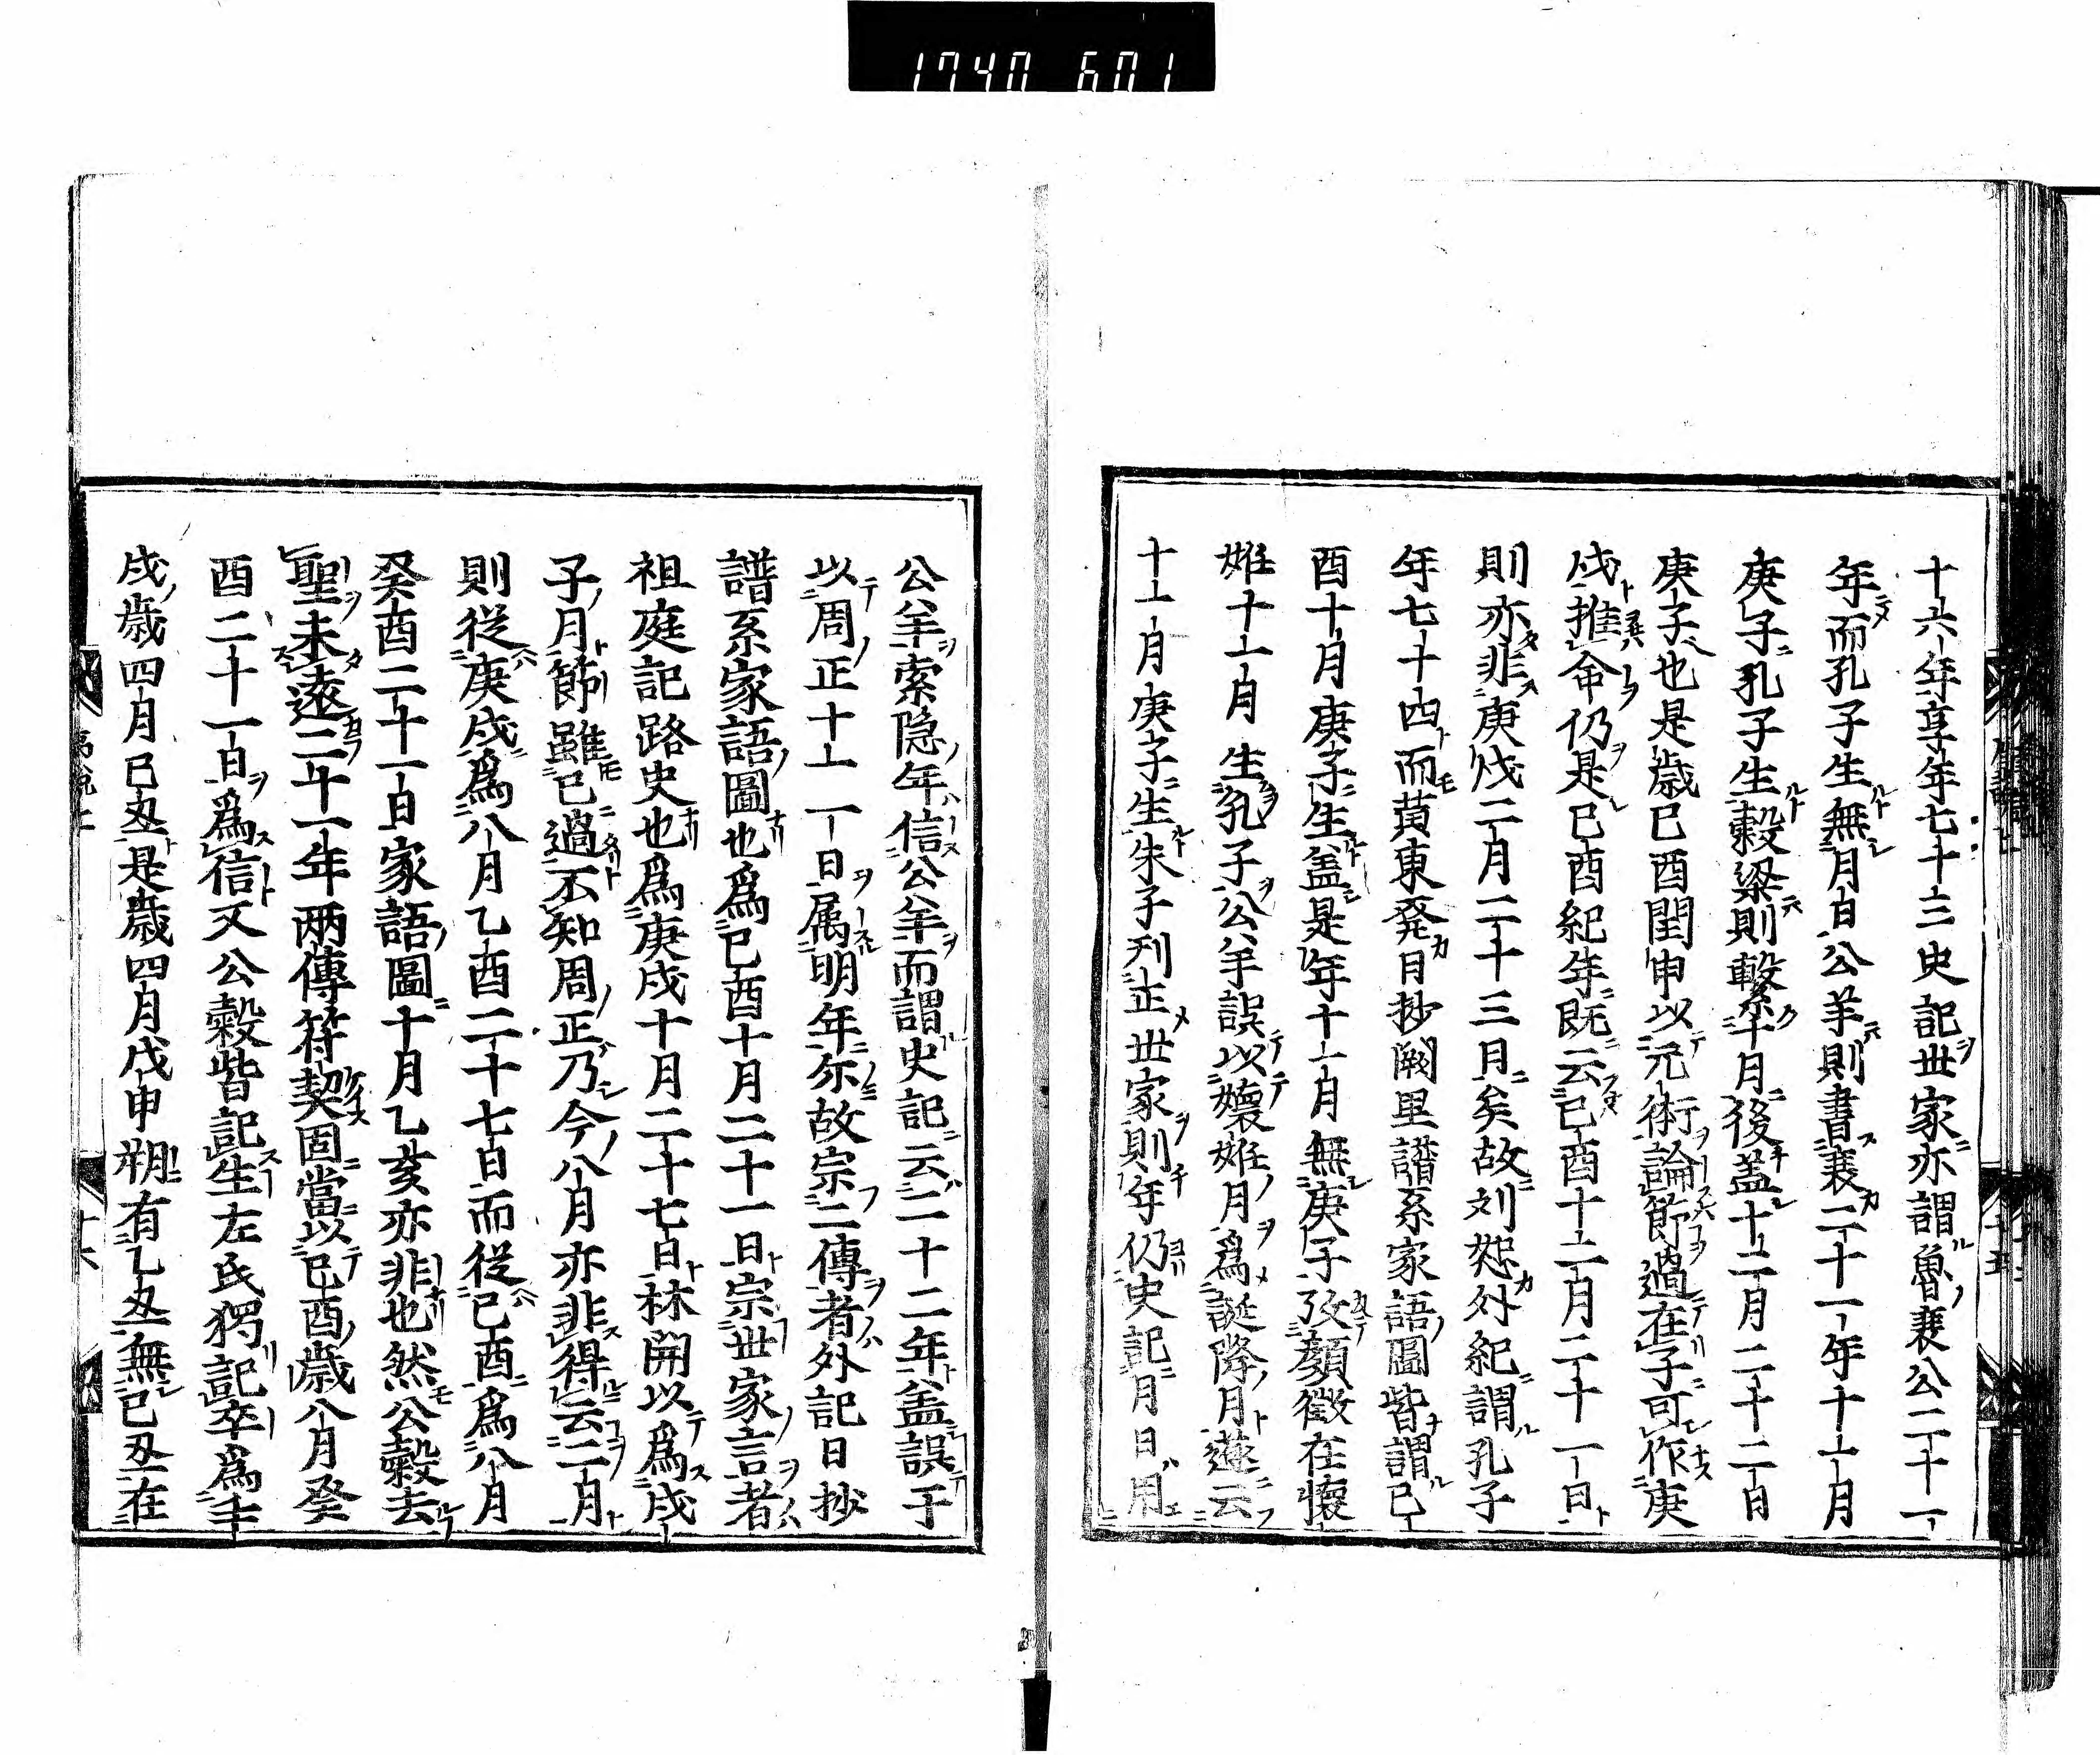 1740 601
十六年享年七十三史記世家亦謂魯襄公二十一
年而孔子生無月日公羊則書襄二十一年十一月
庚子孔子生穀梁則繫十月後盖十二月二十二日
庚子也是歳已酉閏申以元術論節過在子可作庚
戌推命仍是已酉紀年既云已酉十二月二十一日
則亦非庚戌二月二十三月矣故刘恕外紀謂孔子
年七十四而黄東発日抄闕里譜系家語圖皆謂已
酉十月庚子生盖是年十一月無庚子攷顔徴在懐
姙十一月生孔子公羊誤以懐姙月爲誕降月遂云
十一月庚子生朱子刊正世家則年仍史記月日用
公羊索隐年信公羊而謂史記云二十二年盖誤于
以周正十一日属明年尓故宗二傳者外記日抄
譜系家語圖也爲已酉十月二十一日宗世家言者
祖庭記路史也爲庚戌十月二十七日林開以爲戌
子月節雖已過不知周正乃今八月亦非得云二月
則從庚戌爲八月乙酉二十七日而從已酉爲八月
癸酉二十一日家語圖十月乙亥亦非也然公穀去
聖未遠二十一年两傳符契固當以已酉歳八月癸
酉二十一日爲信又公穀皆記生左氏獨記卒爲壬
戌歳四月已丑是歳四月戊申朔有乙丑無已丑在